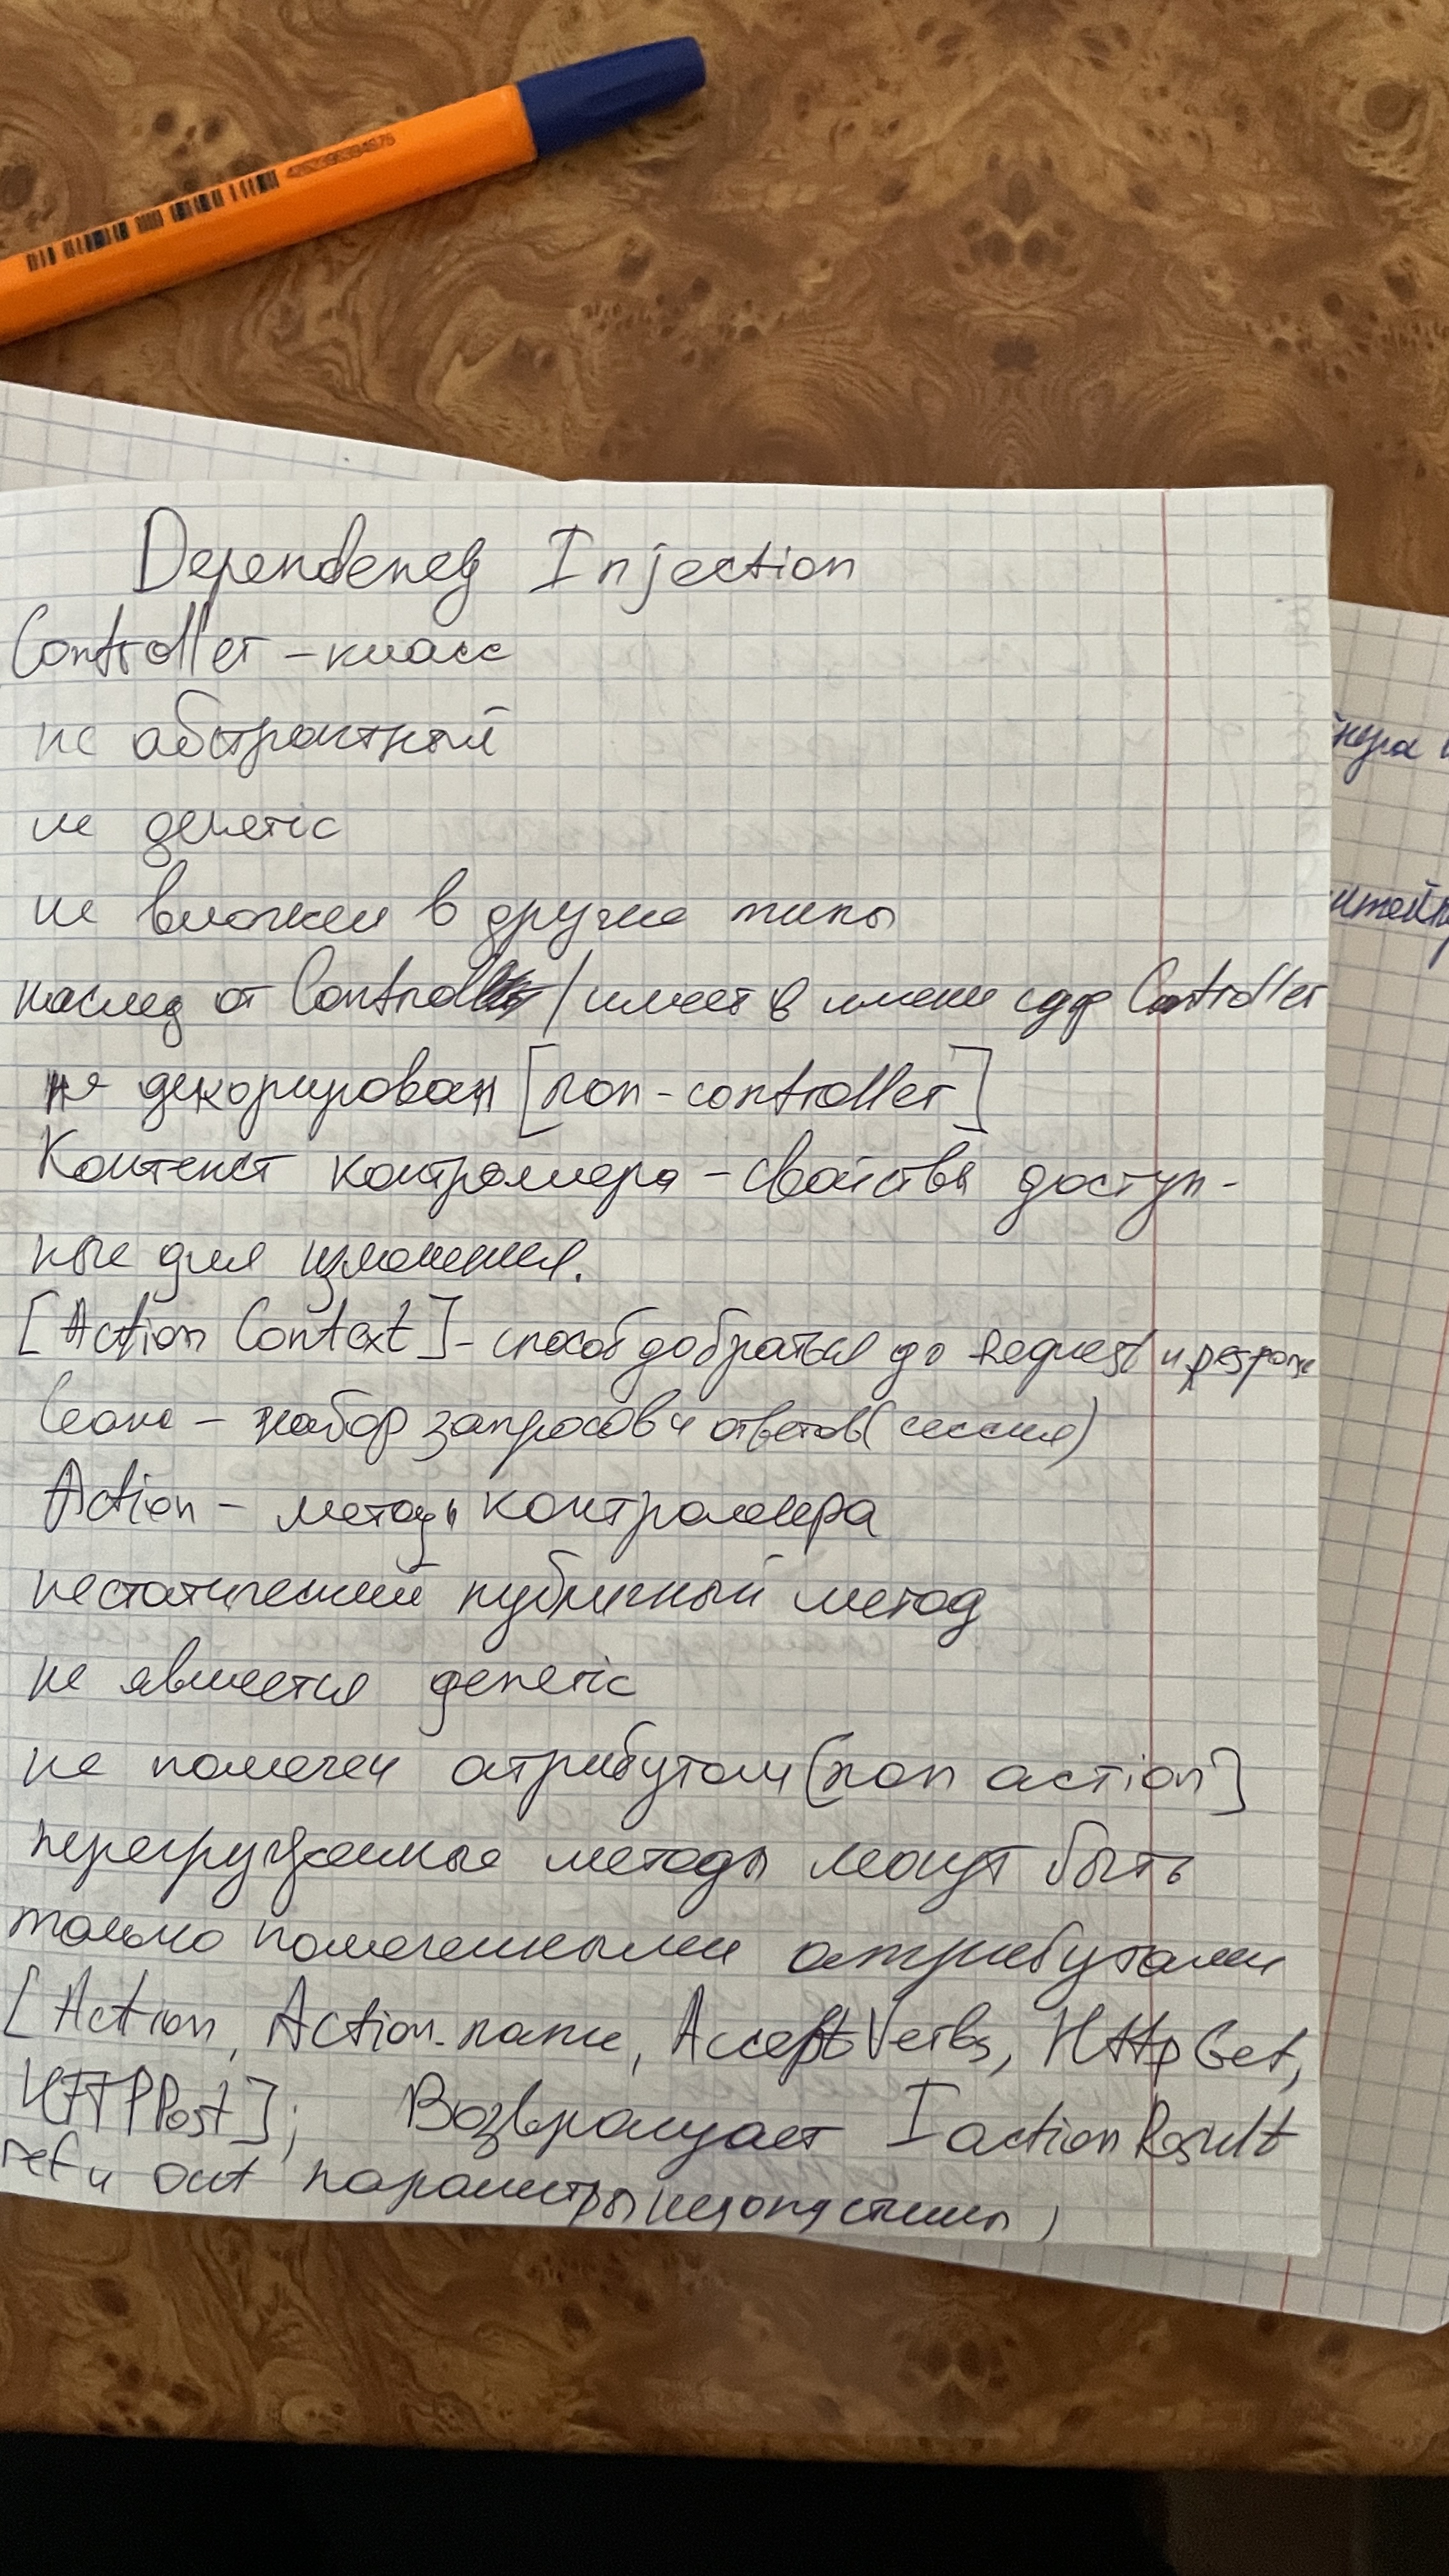 Dependency Injection
Controller – класс
не абстрактный
не generic
не вложен в другие типы
наслед от Controller / имеет в имени суф Controller
не декорирован [non-controller]
Контекст контроллера – свойства доступ-
ные для изменения.
[Action Context] – способ добраться до Request и response
Сеанс – набор запросов и ответов (сессия)
Action – методы контроллера
нестатический публичный метод
не является generic
не помечен атрибутом [non action]
перегруженные методы могут быть
только помеченными атрибутами
[Action, Action-name, AcceptVerbs, HttpGet,
HTTPPost]; Возвращает IactionResult
ref и out параметры недопустимы